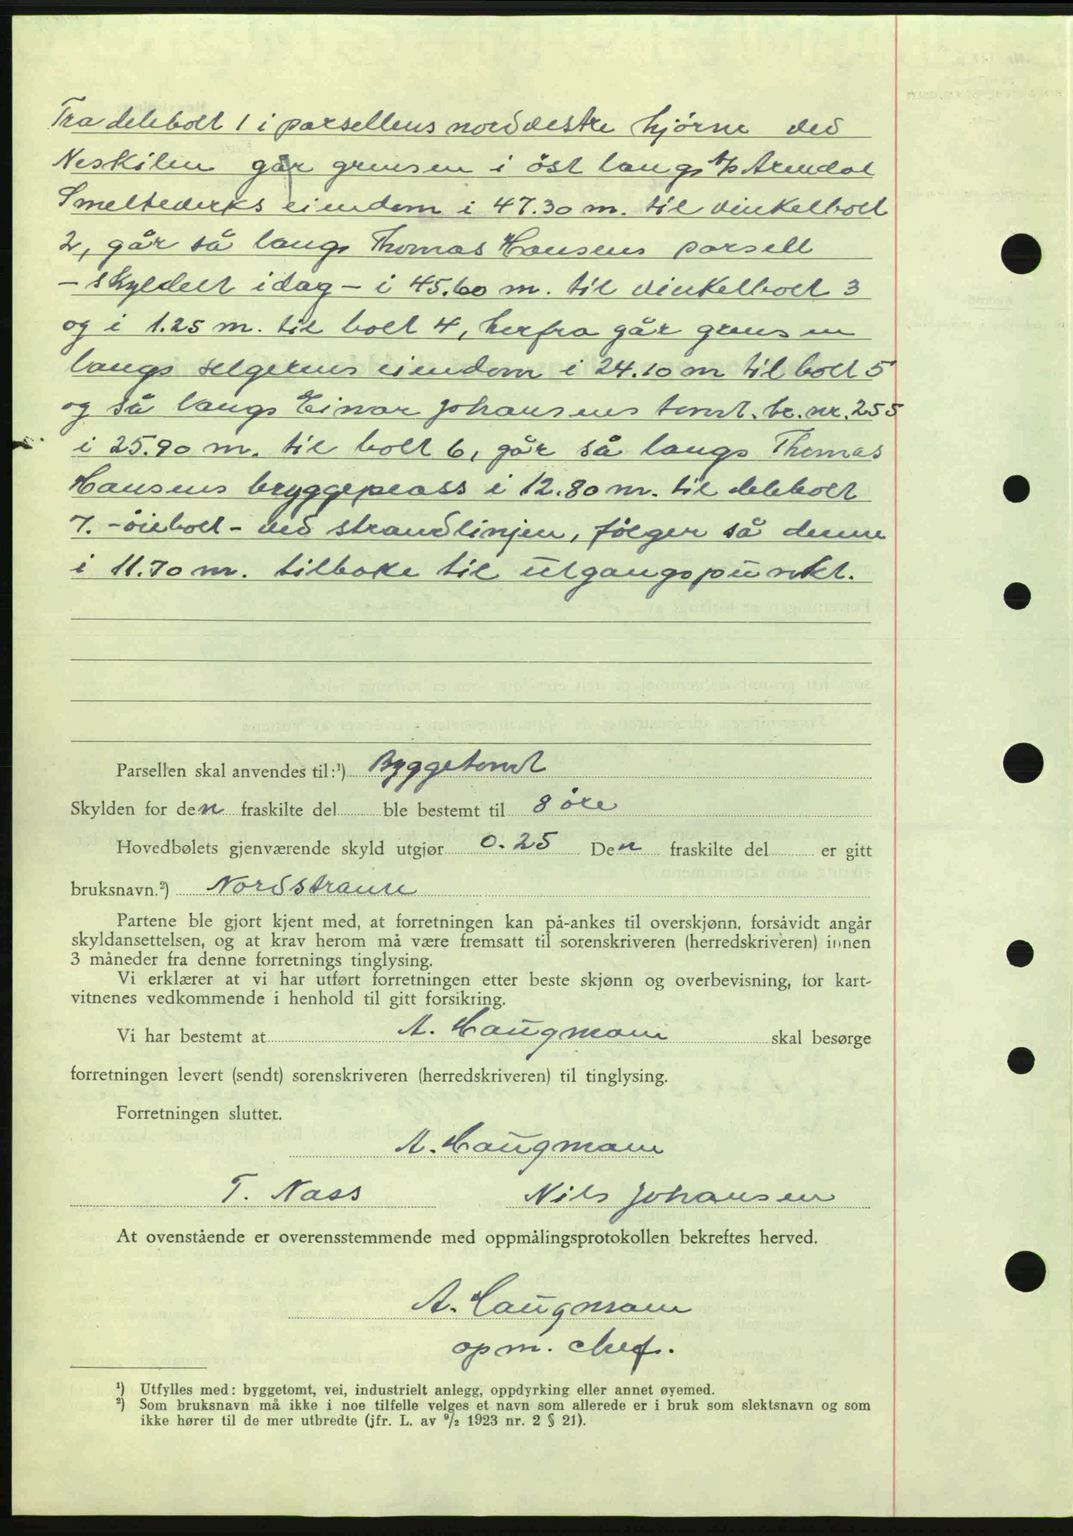 Fra delebolt 1 i parsellens nordvestre hjørne ved
Neskilen går grensen i öst langs A/S Arendal
Smelteverks eiendom i 47.30 m. til vinkelbolt
2, går så langs Thomas Hansens parsell
- skyldelt idag - i 45.60 m. til vinkelbolt 3
og i 1.25 m. til bolt 4, herfra går grensen
langs selgerens eiendom i 24.10 m til bolt 5
og så langs Einar Johansens tomt. br. nr. 255
i 25.90 m. til bolt 6, går så langs Thomas
Hansens bryggeplass i 12.80 m. til delebolt
7. - öiebolt - ved strandlinjen, fölger så denne
i 11.70 m. tilbake til utgangspunkt.
Parsellen skal anvendes til:¹) Byggetomt
Skylden for den fraskilte del ble bestemt til 8 öre
Hovedbølets gjenværende skyld utgjør 0.25 Den fraskilte del er gitt
bruksnavn.²) Nordstraum
Partene ble gjort kjent med, at forretningen kan på-ankes til overskjønn, forsåvidt angår
skyldansettelsen, og at krav herom må være fremsatt til sorenskriveren (herredskriveren) innen
3 måneder fra denne forretnings tinglysing.
Vi erklærer at vi har utført forretningen etter beste skjønn og overbevisning, for kart-
vitnenes vedkommende i henhold til gitt forsikring.
Vi har bestemt at A. Haugmann skal besørge
forretningen levert (sendt) sorenskriveren (herredskriveren) til tinglysing.
Forretningen sluttet.
A. Haugmann
T. Nass Nils Johansen
At ovenstående er overensstemmende med oppmålingsprotokollen bekreftes herved.
A. Haugmann
opm. chef.
¹) Utfylles med: byggetomt, vei, industrielt anlegg, oppdyrking eller annet øyemed.
²) Som bruksnavn må ikke i noe tilfelle velges et navn som allerede er i bruk som slektsnavn og som
ikke hører til de mer utbredte (jfr. L. av ⁹/₂ 1923 nr. 2 § 21).